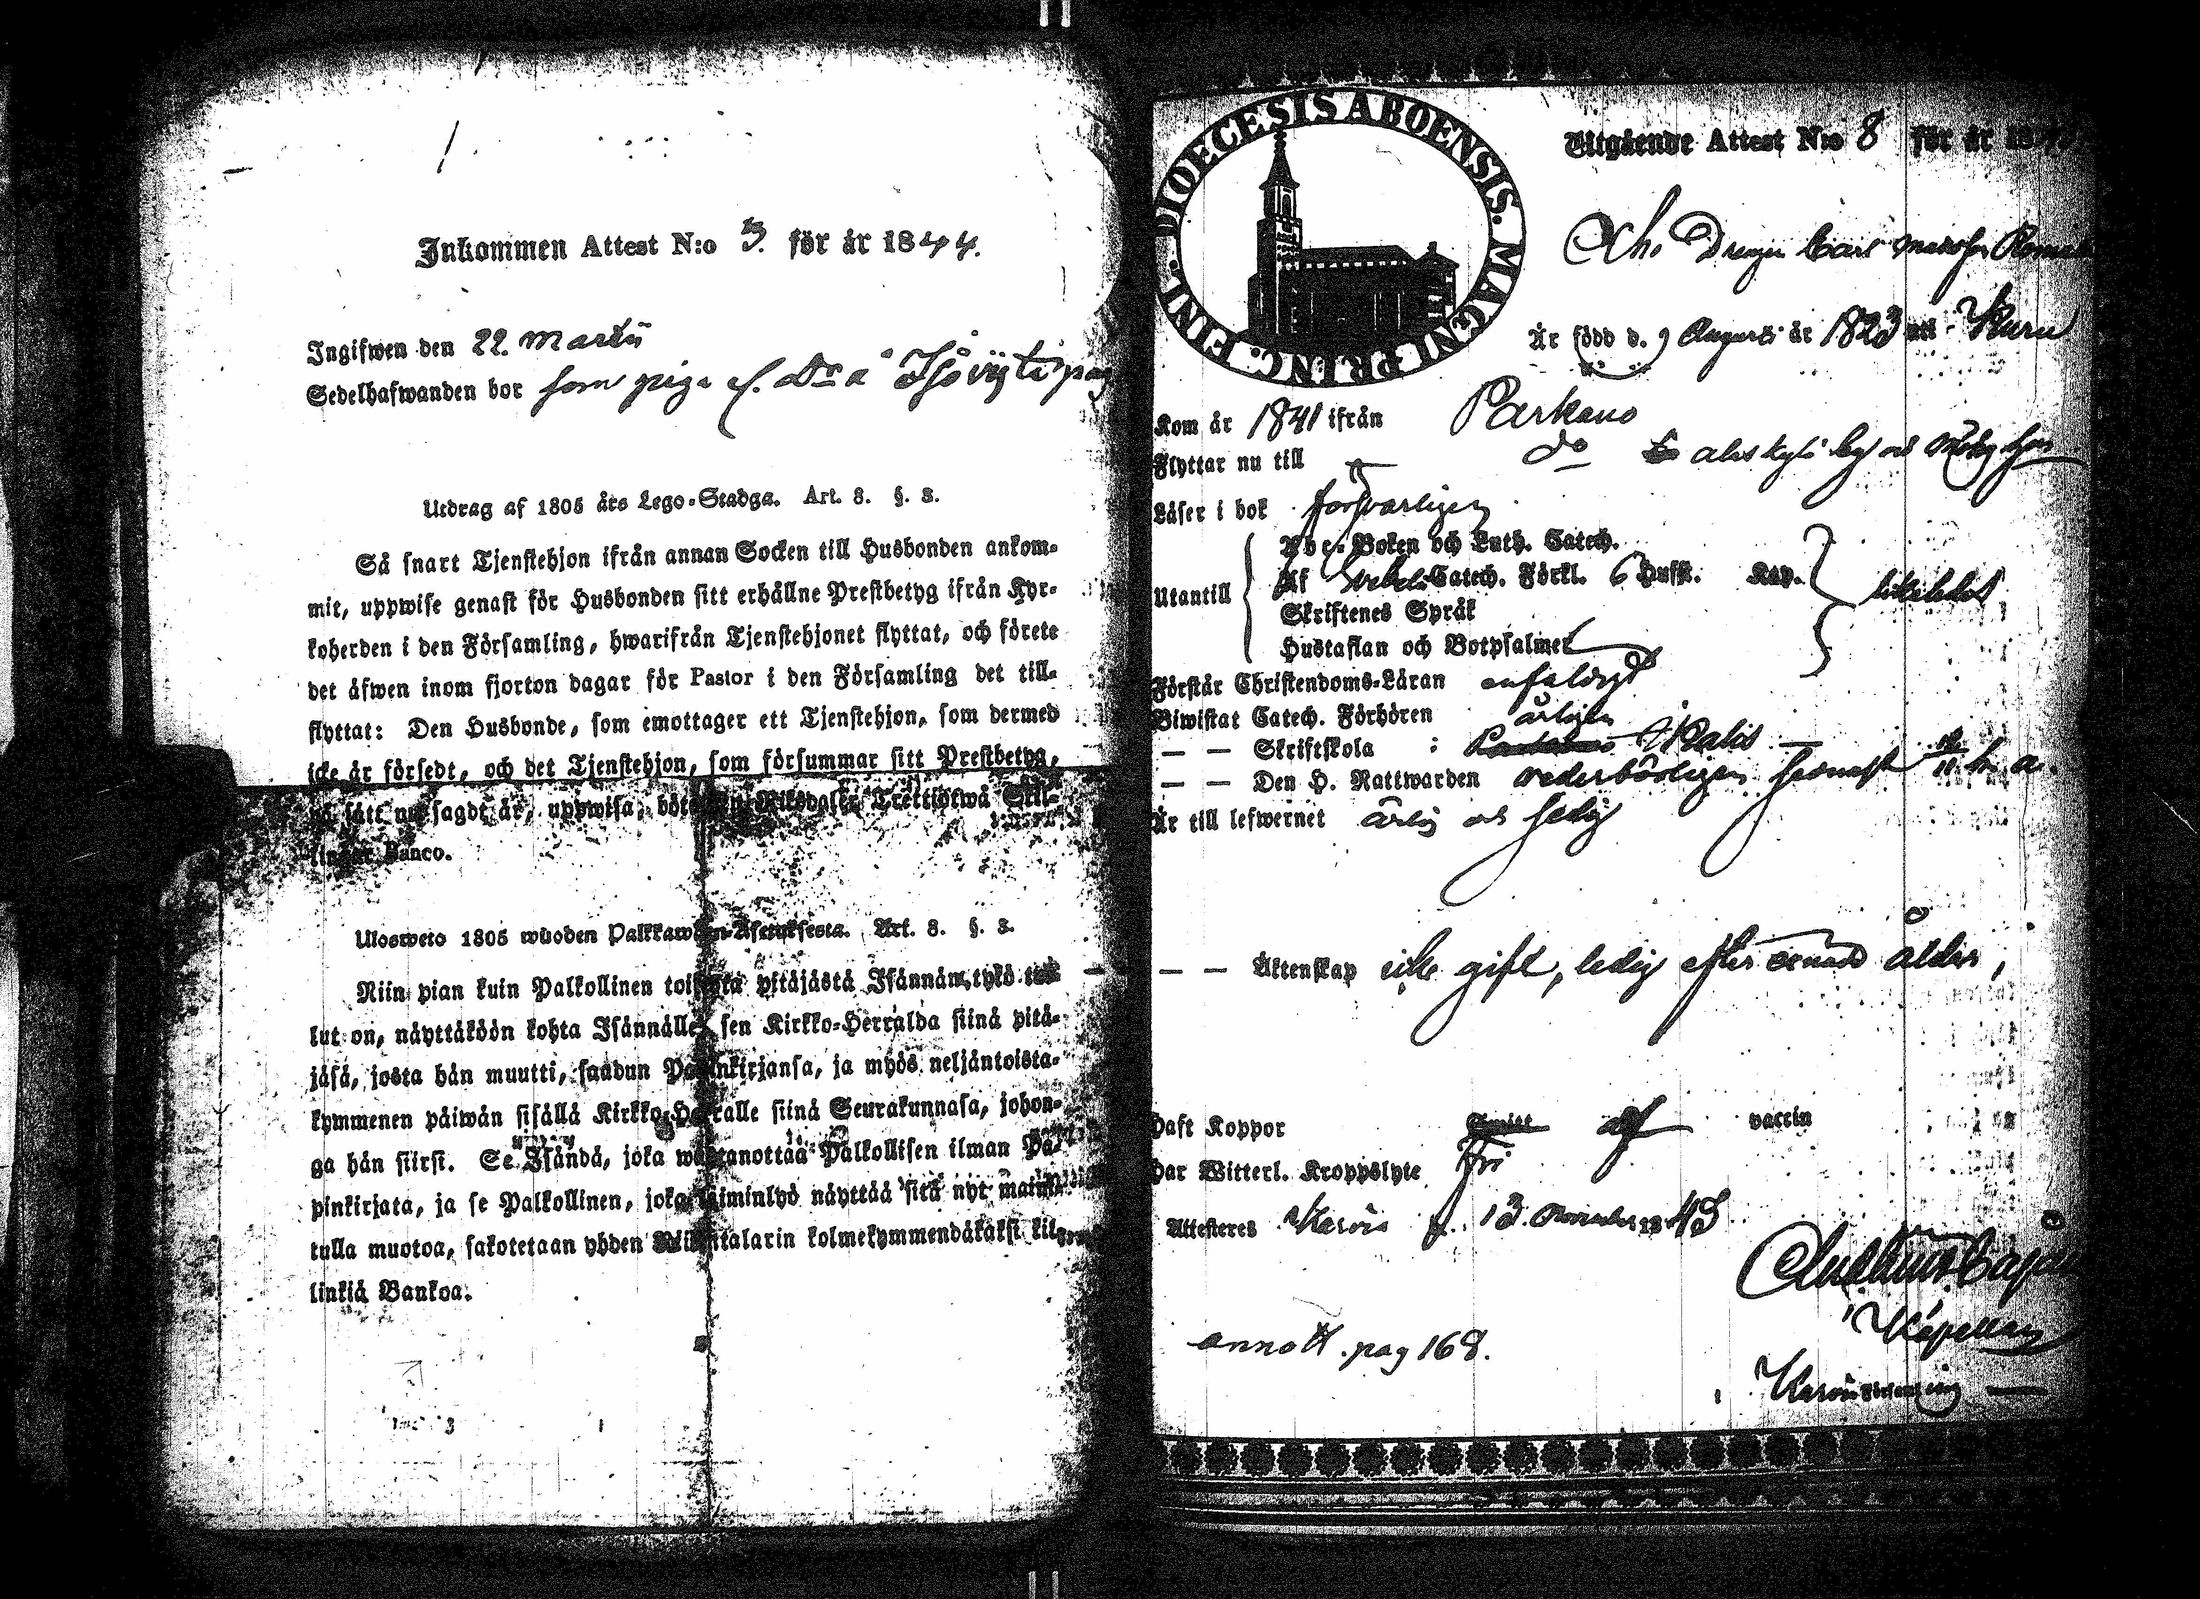 Inkommen Attest N:o 3. för år 1844.
Ingifwen den 22. Martii
Sedelhafwanden bor som piga
Utdrag af 1805 års Lego-Stadga. Art. 8. §. 3.
Så snart Tjenstehjon ifrån annan Socken till Husbonden ankom-
mit, uppwise genast för Husbonden sitt erhållne Prestbetyg ifrån Kyr-
koherden i den Församling, hwarifrån Tjenstehjonet flyttat, och förete
det äfwen inom fjorton dagar för Pastor i den Församling det till-
flyttat: Den Husbonde, som emottager ett Tjenstehjon, som dermed
icke är försedt, och det Tjenstehjon, som försummar sitt Prestbetyg,
på sätt nu sagdt är, uppwisa, böte en Riksdaler Trettiotwå Skil-
lingar Banco.
Ulosweto 1805 wuoden Palkkawäen-Asetuksesta. Art. 8. §. 3.
Niin pian kuin Palkollinen toisesta pitäjästä Isännän tykö tul-
lut on, näyttäköön kohta Isännälle sen Kirkko-Herralda siinä pitä-
jäsä, josta hän muutti, saadun Papinkirjansa, ja myös neljäntoista-
kymmenen päiwän sisällä Kirkko-Herralle siinä Seurakunnasa, johon-
ga hän siirsi. Se Isändä, joka wastanottaa Palkollisen ilman Pa-
pinkirjata, ja se Palkollinen, joka laiminlyö näyttää sitä nyt mainit-
tulla muotoa, sakotetaan yhden Riikintalarin kolmekymmendäkaksi kil-
linkiä Bankoa.
DIOECESIS ABOENSIS. MAGNI PRINC. FINL.
Utgående Attest N:o 8 för år 18
Drengen Carl Matsson
Är född d. 9 Augusti år 1823 uti Kuru
Kom år 1841 ifrån Parkano
Flyttar nu till do
Läser i bok försvarligen
Utantill
Abc-Boken och Luth. Catech.
Af Svebeli Catech. Förkl. 6 Hufst. Kap.
Skriftenes Språk
Hustaflan och Botpsalmer
Förstår Christendoms-Läran enfaldigt
Biwistat Catech. Förhören årligen
— — Skriftskola :
— — Den H. Nattwarden vederbörligen senast
Är till lefwernet ärlig och sedig
— — Äktenskap icke gift, ledig efter ålder,
Haft Koppor af vaccin
Har Witterl. Kroppslyte fri
Attesteres Karvia d. 13. November 1843
Capellan
Karvia Församling
annott. pag 168.